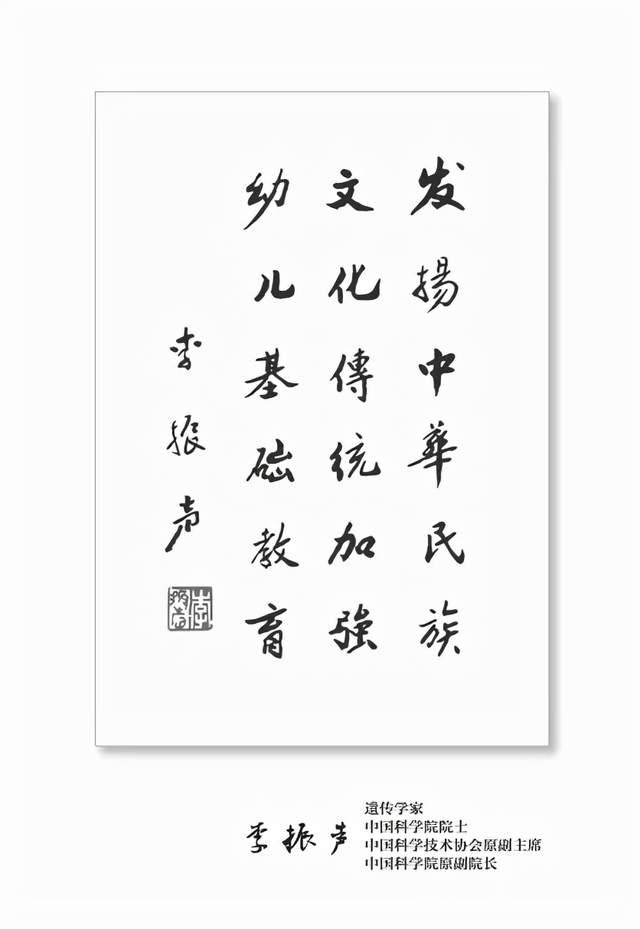 发揚中華民族
文化傳統加強
幼儿基础教育
李振声
李振声
遺传学家
中国科学院院士
中国科学技术协会原副主席
中国科学院原副院长